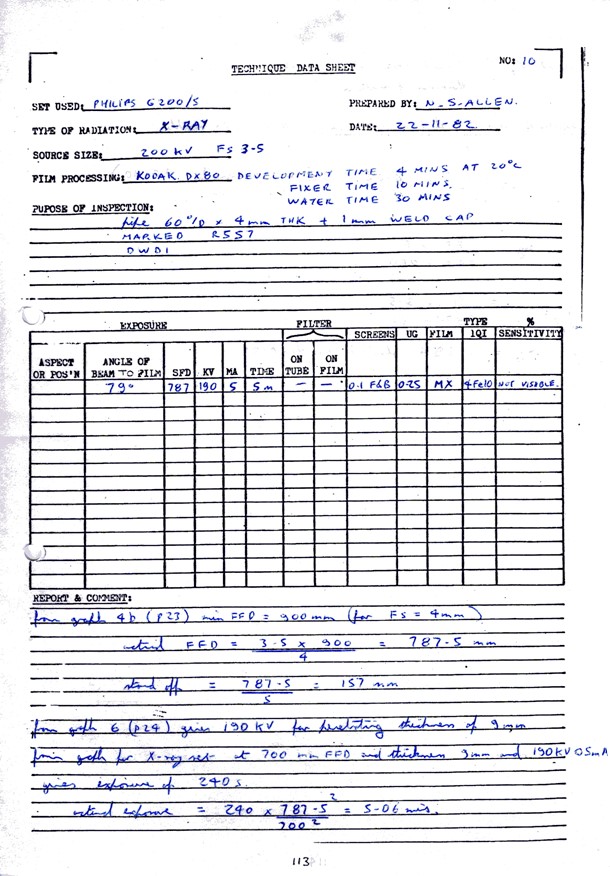 TECHNIQUE DATA SHEET
NO: 10
SET USED: PHILIPS G200/5
PREPARED BY: N. S. ALLEN.
TYPE OF RADIATION: X-RAY
DATE: 22-11-82
SOURCE SIZE: 200 KV FS 3.5
FILM PROCESSING: KODAK DX80 DEVELOPMENT TIME 4 MINS AT 20°C
FIXER TIME 10 MINS.
WATER TIME 30 MINS
PUPOSE OF INSPECTION:
Pipe 60 O/D x 4mm THK + 1mm WELD CAP
MARKED R557
DWDI
EXPOSURE FILTER TYPE %
SCREENS UG FILM IQI SENSITIVITY
ASPECT OR POS'N ANGLE OF BEAM TO FILM SFD KV MA TIME ON TUBE ON FILM
79° 787 190 5 5m — — 0.1 F&B 0.25 MX 4Fe10 NOT VISABLE.
REPORT & COMMENT:
from graph 4b (p23) min FFD = 900mm (for FS = 4mm)
actual FFD = 3.5 x 900 / 4 = 787.5 mm
stand off = 787.5 / 5 = 157 mm
from graph 6 (p24) gives 190 KV for penetrating thickness of 9mm
from graph for X-ray set at 700 mm FFD and thickness 9mm and 190KV 05mA
gives exposure of 240s.
actual exposure = 240 x 787.5² / 700² = 5.06 mins.
113